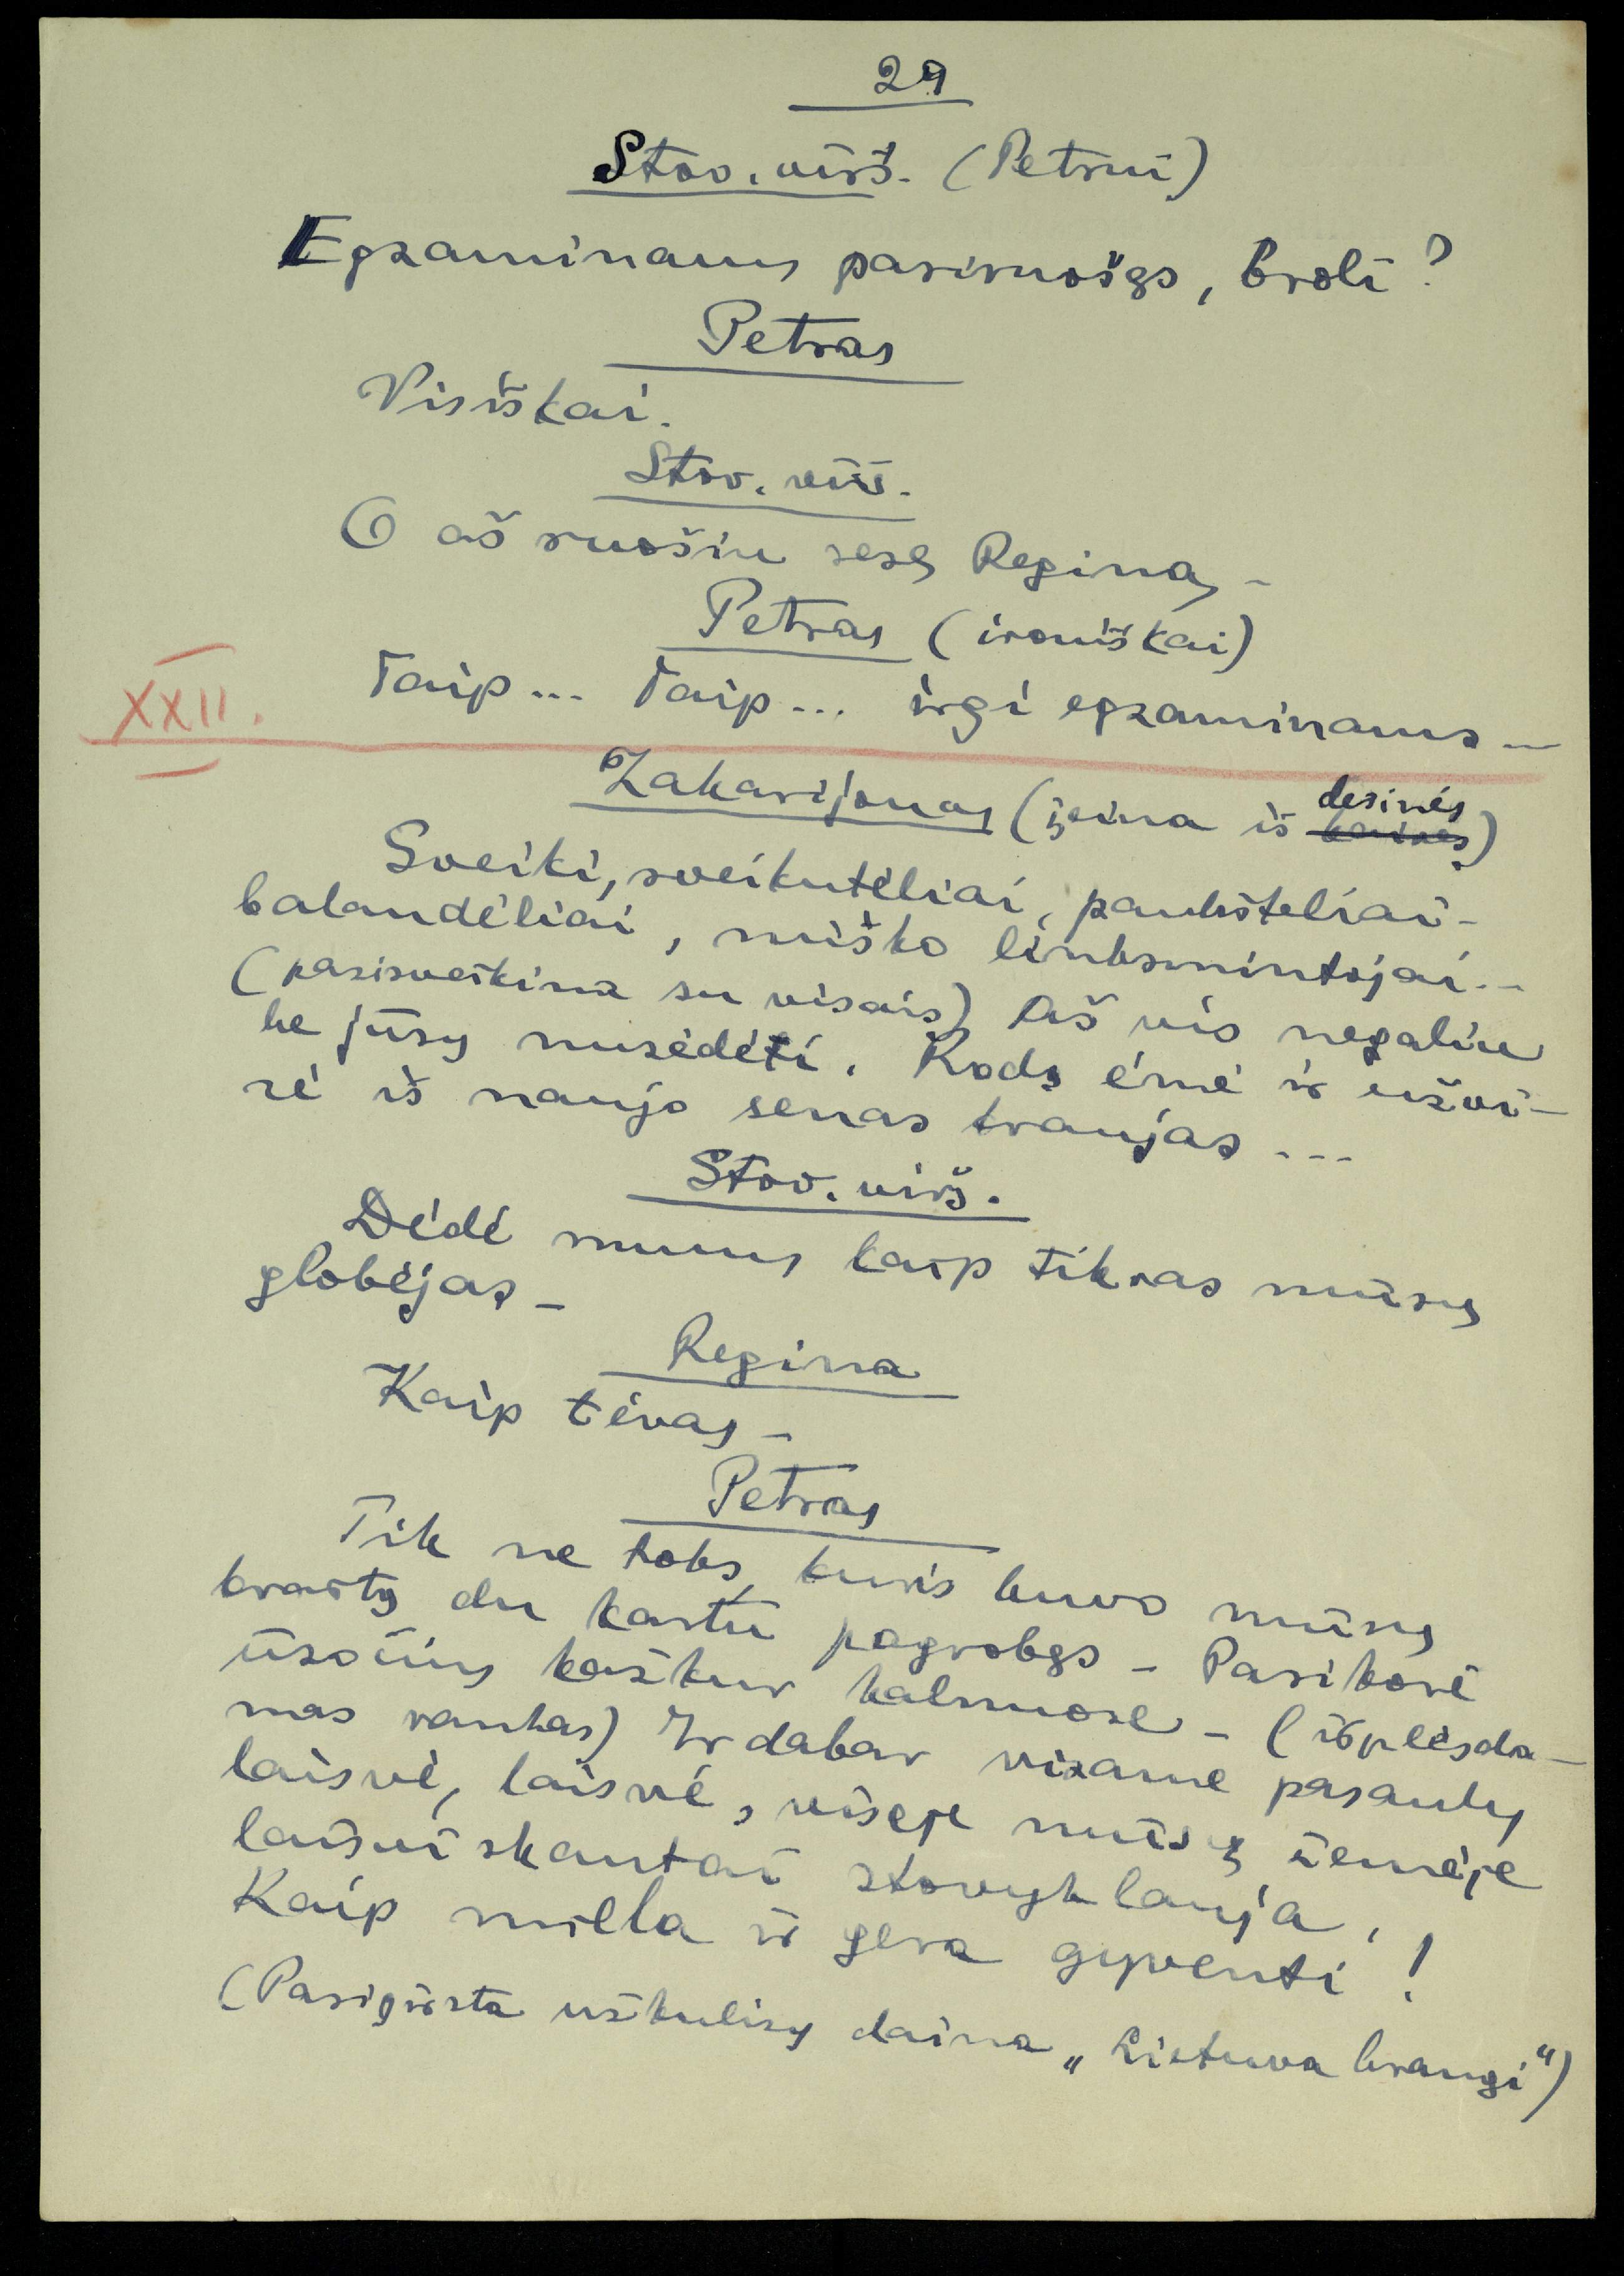 29
Stov. virš. (Petrui)
Egzaminams pasiruošęs, broli?
Petras
Visiškai.
Stov. virš.
O aš ruošiu sesę Reginą –
Petras (ironiškai)
Taip... Taip... irgi egzaminams –
XXII.
Zakarijonas (įeina iš dešinės)
Sveiki, sveikutėliai, paukšteliai –
balandėliai, miško linksmintojai...
(pasisveikina su visais) Aš vis negaliu
be jūsų nusėdėti. Kodą ėmė ir užvi-
rė iš naujo senas kraujas ...
Stov. virš.
Dėdė mums kaip tikras mūsų
globėjas –
Regina
Kaip tėvas –
Petras
Tik ne toks, kuris buvo mūsų
kraštą du kartu pagrobęs – Parikorė
ūsočius kažkur kalnuose – (išplėsda-
mas rankas) Ir dabar visame pasauly
laisvė, laisvė, visoje mūsų žemėje
laisvi skautai stovyklauja,
Kaip miela ir gera gyventi!
(Pasigirsta užkulisy daina „Lietuva brangi“)